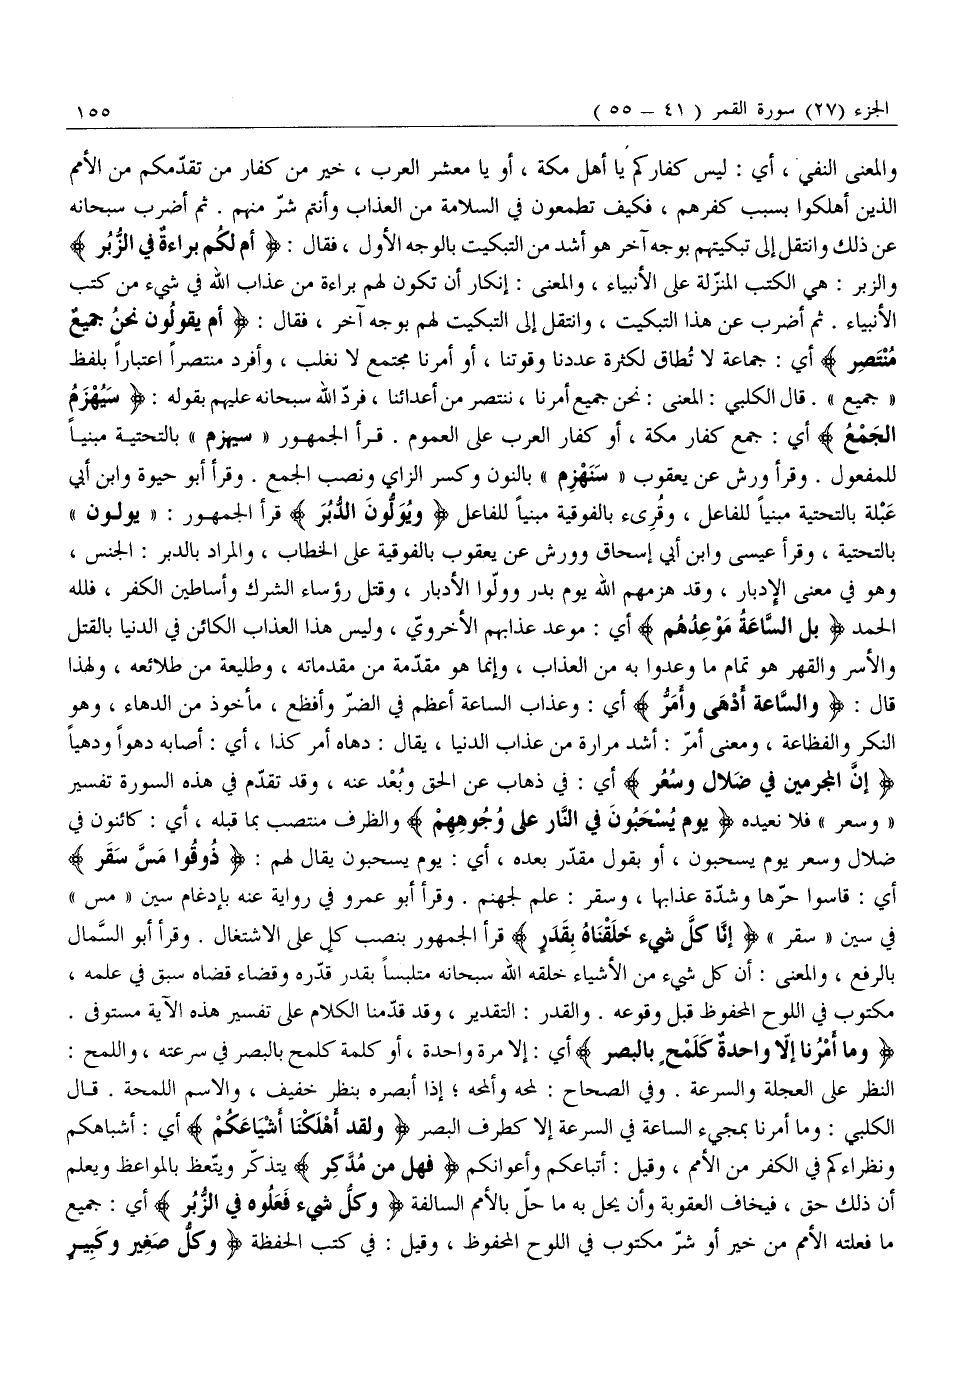 الجزء (٢٧) سورة القمر ( ٤١ – ٥٥ ) ١٥٥
والمعنى النفي ، أي : ليس كفاركم يا أهل مكة ، أو يا معشر العرب ، خير من كفار من تقدّمكم من الأمم
الذين أهلكوا بسبب كفرهم ، فكيف تطمعون في السلامة من العذاب وأنتم شرّ منهم . ثم أضرب سبحانه
عن ذلك وانتقل إلى تبكيتهم بوجه آخر هو أشد من التبكيت بالوجه الأول ، فقال : ﴿ أم لكُم براءةٌ في الزُّبُر ﴾
والزبر : هي الكتب المنزّلة على الأنبياء ، والمعنى : إنكار أن تكون لهم براءة من عذاب الله في شيء من كتب
الأنبياء . ثم أضرب عن هذا التبكيت ، وانتقل إلى التبكيت لهم بوجه آخر ، فقال : ﴿ أم يقولُون نحنُ جميعٌ
مُنْتَصِر ﴾ أي : جماعة لا تُطاق لكثرة عددنا وقوتنا ، أو أمرنا مجتمع لا نغلب ، وأفرد منتصراً اعتباراً بلفظ
« جميع » . قال الكلبي : المعنى : نحن جميع أمرنا ، ننتصر من أعدائنا ، فردّ الله سبحانه عليهم بقوله : ﴿ سَيُهْزَمُ
الجَمْعُ ﴾ أي : جمع كفار مكة ، أو كفار العرب على العموم . قرأ الجمهور « سيهزم » بالتحتية مبنياً
للمفعول . وقرأ ورش عن يعقوب « سَنَهْزِم » بالنون وكسر الزاي ونصب الجمع . وقرأ أبو حيوة وابن أبي
عَبْلة بالتحتية مبنياً للفاعل ، وقُرىء بالفوقية مبنياً للفاعل ﴿ ويُوَلُّونَ الدُّبُرَ ﴾ قرأ الجمهور : « يولون »
بالتحتية ، وقرأ عيسى وابن أبي إسحاق وورش عن يعقوب بالفوقية على الخطاب ، والمراد بالدبر : الجنس ،
وهو في معنى الإدبار ، وقد هزمهم الله يوم بدر وولّوا الأدبار ، وقتل رؤساء الشرك وأساطين الكفر ، فلله
الحمد ﴿ بل السَّاعَةُ مَوْعِدُهُم ﴾ أي : موعد عذابهم الأخرويّ ، وليس هذا العذاب الكائن في الدنيا بالقتل
والأسر والقهر هو تمام ما وعدوا به من العذاب ، وإنما هو مقدّمة من مقدماته ، وطليعة من طلائعه ، ولهذا
قال : ﴿ والسَّاعة أَدْهَى وأَمَرُّ ﴾ أي : وعذاب الساعة أعظم في الضرّ وأفظع ، مأخوذ من الدهاء ، وهو
النكر والفظاعة ، ومعنى أمرّ : أشد مرارة من عذاب الدنيا ، يقال : دهاه أمر كذا ، أي : أصابه دهواً ودهياً
﴿ إنَّ المجرمين في ضَلال وسُعُر ﴾ أي : في ذهاب عن الحق وبُعْد عنه ، وقد تقدّم في هذه السورة تفسير
« وسعر » فلا نعيده ﴿ يوم يُسْحَبُونَ في النَّار على وُجُوههِمْ ﴾ والظرف منتصب بما قبله ، أي : كائنون في
ضلال وسعر يوم يسحبون ، أو بقول مقدّر بعده ، أي : يوم يسحبون يقال لهم : ﴿ ذُوقُوا مَسَّ سَقَر ﴾
أي : قاسوا حرّها وشدّة عذابها ، وسقر : علم لجهنم . وقرأ أبو عمرو في رواية عنه بإدغام سين « مس »
في سين « سقر » ﴿ إنَّا كلَّ شيء خَلَقْنَاهُ بِقَدَرٍ ﴾ قرأ الجمهور بنصب كل على الاشتغال . وقرأ أبو السَّمال
بالرفع ، والمعنى : أن كل شيء من الأشياء خلقه الله سبحانه متلبساً بقدر قدّره وقضاء قضاه سبق في علمه ،
مكتوب في اللوح المحفوظ قبل وقوعه . والقدر : التقدير ، وقد قدّمنا الكلام على تفسير هذه الآية مستوفى .
﴿ وما أَمْرُنا إلّا واحدةٌ كَلَمْحٍ بالبصر ﴾ أي : إلا مرة واحدة ، أو كلمة كلمح بالبصر في سرعته ، واللمح :
النظر على العجلة والسرعة . وفي الصحاح : لمحه وألمحه ؛ إذا أبصره بنظر خفيف ، والاسم اللمحة . قال
الكلبي : وما أمرنا بمجيء الساعة في السرعة إلا كطرف البصر ﴿ ولقد أَهْلَكْنَا أَشْيَاعَكُمْ ﴾ أي : أشباهكم
ونظراءكم في الكفر من الأمم ، وقيل : أتباعكم وأعوانكم ﴿ فهل من مُدَّكِر ﴾ يتذكّر ويتّعظ بالمواعظ ويعلم
أن ذلك حق ، فيخاف العقوبة وأن يحل به ما حلّ بالأمم السالفة ﴿ وكلُّ شيء فَعَلُوه في الزُّبُر ﴾ أي : جميع
ما فعلته الأمم من خير أو شرّ مكتوب في اللوح المحفوظ ، وقيل : في كتب الحفظة ﴿ وكلُّ صَغِير وكَبِير